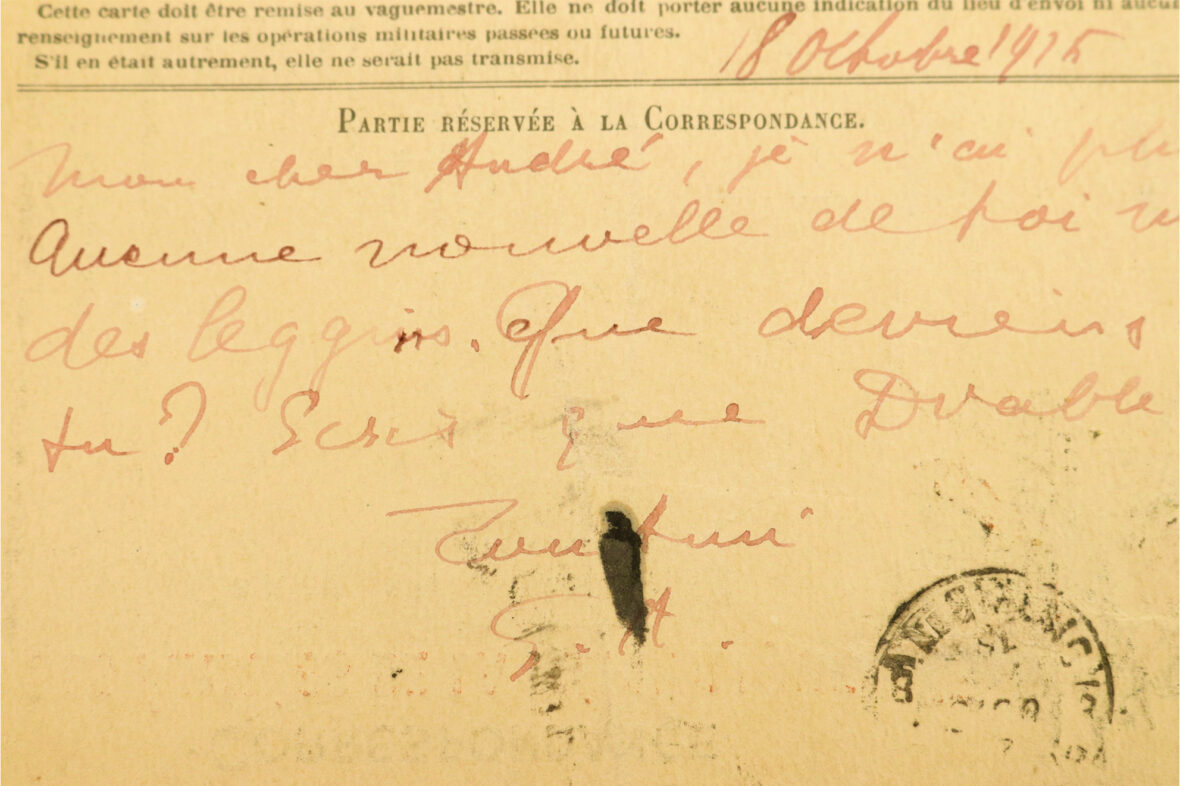 Cette carte doit être remise au vaguemestre. Elle ne doit porter aucune indication du lieu d'envoi ni aucun
renseignement sur les opérations militaires passées ou futures.
S'il en était autrement, elle ne serait pas transmise.
18 Octobre 1915
PARTIE RÉSERVÉE À LA CORRESPONDANCE.
Mon cher André, je n'ai plu
Aucune nouvelle de toi n
des leggins. Que deviens
tu? Ecris que Diable